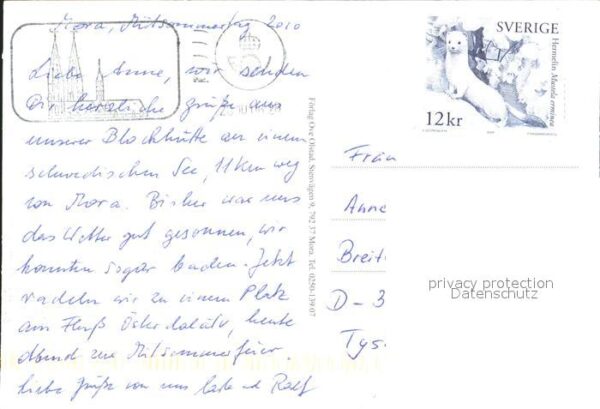 Mora, Mitsommertag 2010
Liebe Anne, wir senden
Dir herzliche Grüße aus
unserer Blockhütte an einem
schwedischen See, 11 km weg
von Mora. Bisher war uns
das Wetter gut gesonnen, wir
konnten sogar baden. Jetzt
radeln wir zu einem Platz
am Fluß Österdalälv, heute
Abend zur Mitsommerfeier.
Liebe Grüße von uns Ralf
Förlag: Ove Olstad, Stenvägen 9, 792 37 Mora. Tel. 0250-139 07
SVERIGE
Hermelin Mustela erminea
12 kr
Frau
Anne
Breit
D-3
Tys
privacy protection
Datenschutz